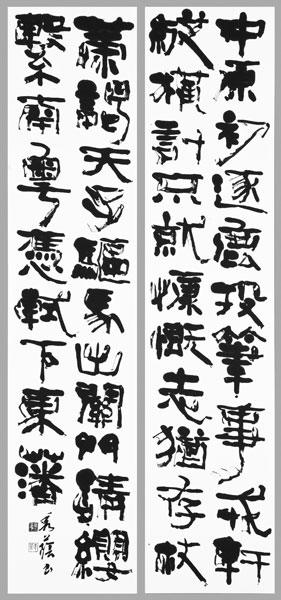 中原初逐鹿投筆事戎軒
縱橫計不就慷慨志猶存杖
策謁天子驅馬出關門請纓
繫南粵憑軾下東藩